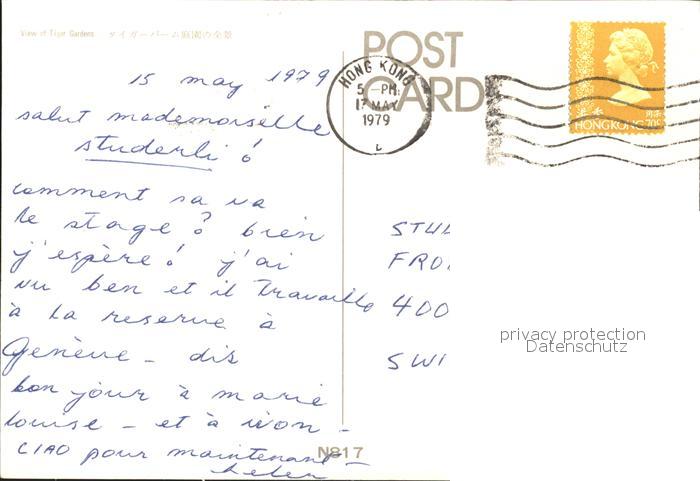 View of Tiger Gardens タイガーバーム庭園の全景
POST
CARD
HONG KONG
5 - PM
17 MAY
1979
L
港香
HONG KONG 70¢
15 may 1979
salut mademoiselle
studerli !
comment sa va
le stage? bien
j'espère! j'ai
vu ben et il Travaille
à la reserve à
Genève - dis
bon jour à marie
louise - et à ivon -
CIAO pour maintenant -
helen
STU
FRO
400
SWI
privacy protection
Datenschutz
N817